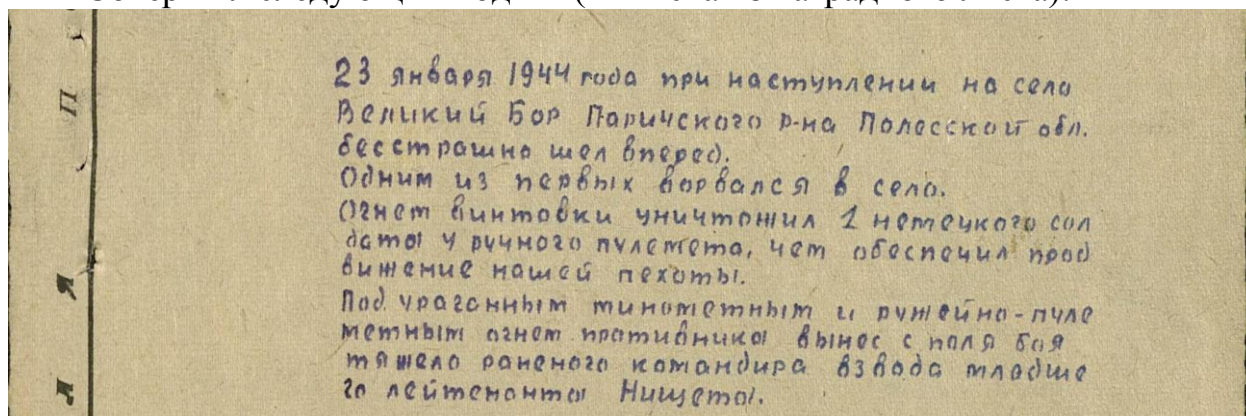 23 января 1944 года при наступлении на село
Великий Бор Паричского р-на Полесской обл.
бесстрашно шел вперед.
Одним из первых ворвался в село.
Огнем винтовки уничтожил 1 немецкого сол
дата у ручного пулемета, чем обеспечил прод
вижение нашей пехоты.
Под ураганным минометным и ружейно-пуле
метным огнем противника вынес с поля боя
тяжело раненого командира взвода младше
го лейтенанта Нищета.
П
Я
Л